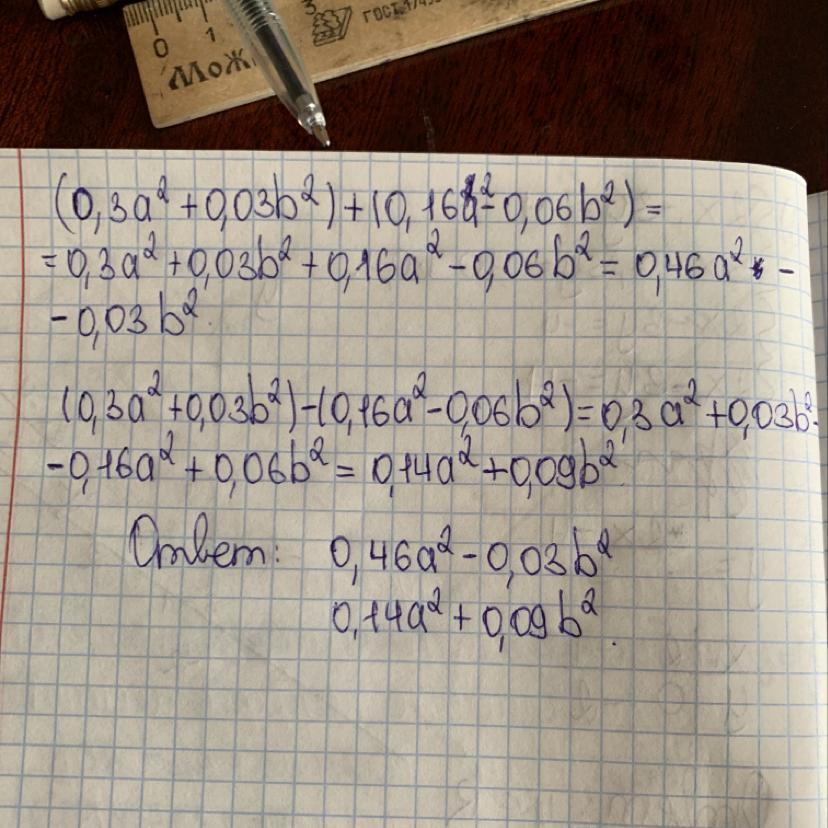 0 1 3 ГОСТ 17435
МОЖ
(0,3a² + 0,03b²) + (0,16a² - 0,06b²) =
= 0,3a² + 0,03b² + 0,16a² - 0,06b² = 0,46a² -
- 0,03b²
(0,3a² + 0,03b²) - (0,16a² - 0,06b²) = 0,3a² + 0,03b² -
- 0,16a² + 0,06b² = 0,14a² + 0,09b²
Ответ: 0,46a² - 0,03b²
0,14a² + 0,09b².